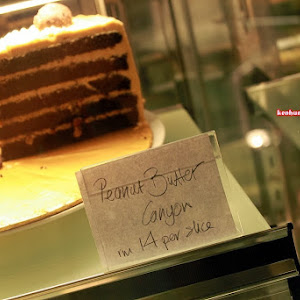 Peanut Butter
Canyon
rm 14 per slice